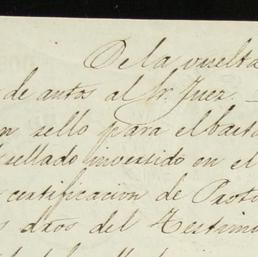 De la vuelta
de autos al Sr. Juez
n sello para el
sellado invertido en el
certificacion de Proto
s dros del Testimo